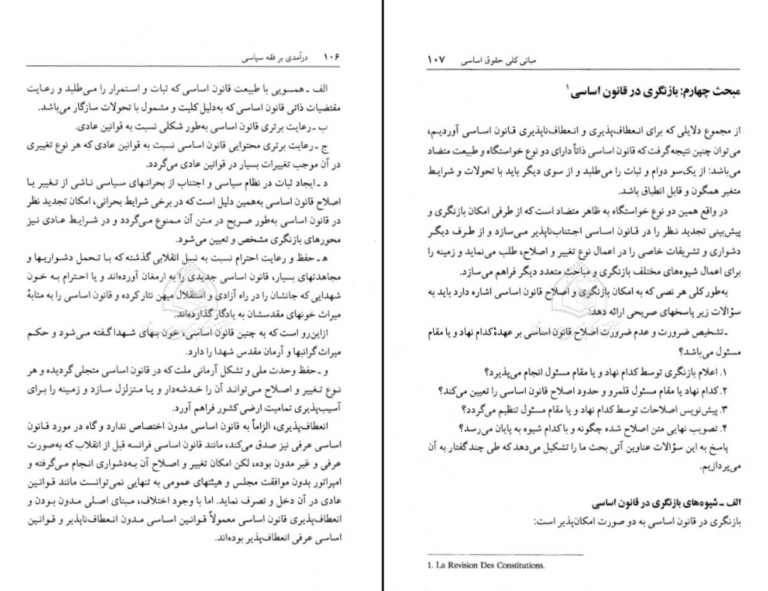 ۱۰۶ درآمدی بر فقه سیاسی
الف ـ همسویی با طبیعت قانون اساسی که ثبات و استمرار را می‌طلبد و رعایت
مقتضیات ذاتی قانون اساسی که به‌دلیل کلیت و شمول با تحولات سازگار می‌باشد.
ب ـ رعایت برتری قانون اساسی به‌طور شکلی نسبت به قوانین عادی.
ج ـ رعایت برتری محتوایی قانون اساسی نسبت به قوانین عادی که هر نوع تغییری
در آن موجب تغییرات بسیار در قوانین عادی می‌گردد.
د ـ ایجاد ثبات در نظام سیاسی و اجتناب از بحرانهای سیاسی ناشی از تغییر یا
اصلاح قانون اساسی به‌همین دلیل است که در برخی شرایط بحرانی، امکان تجدید نظر
در قانون اساسی به‌طور صریح در متن آن ممنوع می‌گردد و در شرایط عادی نیز
محورهای بازنگری مشخص و تعیین می‌شود.
ه‍ ـ حفظ و رعایت احترام نسبت به نسل انقلابی گذشته که با تحمل دشواریها و
مجاهدتهای بسیار، قانون اساسی جدیدی را به ارمغان آورده‌اند و یا احترام به خون
شهدایی که جانشان را در راه آزادی و استقلال میهن نثار کرده و قانون اساسی را به مثابهٔ
میراث خونهای مقدسشان به یادگار گذارده‌اند.
ازاین‌رو است که به چنین قانون اساسی، خون بهای شهدا گفته می‌شود و حکم
میراث گرانبها و آرمان مقدس شهدا را دارد.
و ـ حفظ وحدت ملی و تشکل آرمانی ملت که در قانون اساسی متجلی گردیده و هر
نوع تغییر و اصلاح می‌تواند آن را خدشه‌دار و یا متزلزل سازد و زمینه را برای
آسیب‌پذیری تمامیت ارضی کشور فراهم آورد.
انعطاف‌پذیری، الزاماً به قانون اساسی مدون اختصاص ندارد و گاه در مورد قانون
اساسی عرفی نیز صدق می‌کند، مانند قانون اساسی فرانسه قبل از انقلاب که به‌صورت
عرفی و غیر مدون بوده، لکن امکان تغییر و اصلاح آن به‌دشواری انجام می‌گرفته و
امپراتور بدون موافقت مجلس و هیئتهای عمومی به تنهایی نمی‌توانست مانند قوانین
عادی در آن دخل و تصرف نماید. اما با وجود اختلاف، مبنای اصلی مدون بودن و
انعطاف‌پذیری قانون اساسی معمولاً قوانین اساسی مدون انعطاف‌ناپذیر و قوانین
اساسی عرفی انعطاف‌پذیر بوده‌اند.
مبانی کلی حقوق اساسی ۱۰۷
مبحث چهارم: بازنگری در قانون اساسی۱
از مجموع دلایلی که برای انعطاف‌پذیری و انعطاف‌ناپذیری قانون اساسی آوردیم،
می‌توان چنین نتیجه‌گرفت که قانون اساسی ذاتاً دارای دو نوع خواستگاه و طبیعت متضاد
می‌باشد: از یک‌سو دوام و ثبات را می‌طلبد و از سوی دیگر باید با تحولات و شرایط
متغیر همگون و قابل انطباق باشد.
در واقع همین دو نوع خواستگاه به ظاهر متضاد است که از طرفی امکان بازنگری و
پیش‌بینی تجدید نظر را در قانون اساسی اجتناب‌ناپذیر می‌سازد و از طرف دیگر
دشواری و تشریفات خاصی را در اعمال نوع تغییر و اصلاح، طلب می‌نماید و زمینه را
برای اعمال شیوه‌های مختلف بازنگری و مباحث متعدد دیگر فراهم می‌سازد.
به‌طور کلی هر نصی که به امکان بازنگری و اصلاح قانون اساسی اشاره دارد باید به
سؤالات زیر پاسخهای صریحی ارائه دهد:
ـ تشخیص ضرورت و عدم ضرورت اصلاح قانون اساسی بر عهدهٔ کدام نهاد و یا مقام
مسئول می‌باشد؟
۱. اعلام بازنگری توسط کدام نهاد و یا مقام مسئول انجام می‌پذیرد؟
۲. کدام نهاد یا مقام مسئول قلمرو و حدود اصلاح قانون اساسی را تعیین می‌کند؟
۳. پیش‌نویس اصلاحات توسط کدام نهاد و یا مقام مسئول تنظیم می‌گردد؟
۴. تصویب نهایی متن اصلاح شده چگونه و با کدام شیوه به پایان می‌رسد؟
پاسخ به این سؤالات عناوین آتی بحث ما را تشکیل می‌دهد که طی چند گفتار به آن
می‌پردازیم.
الف ـ شیوه‌های بازنگری در قانون اساسی
بازنگری در قانون اساسی به دو صورت امکان‌پذیر است:
1. La Revision Des Constitutions.